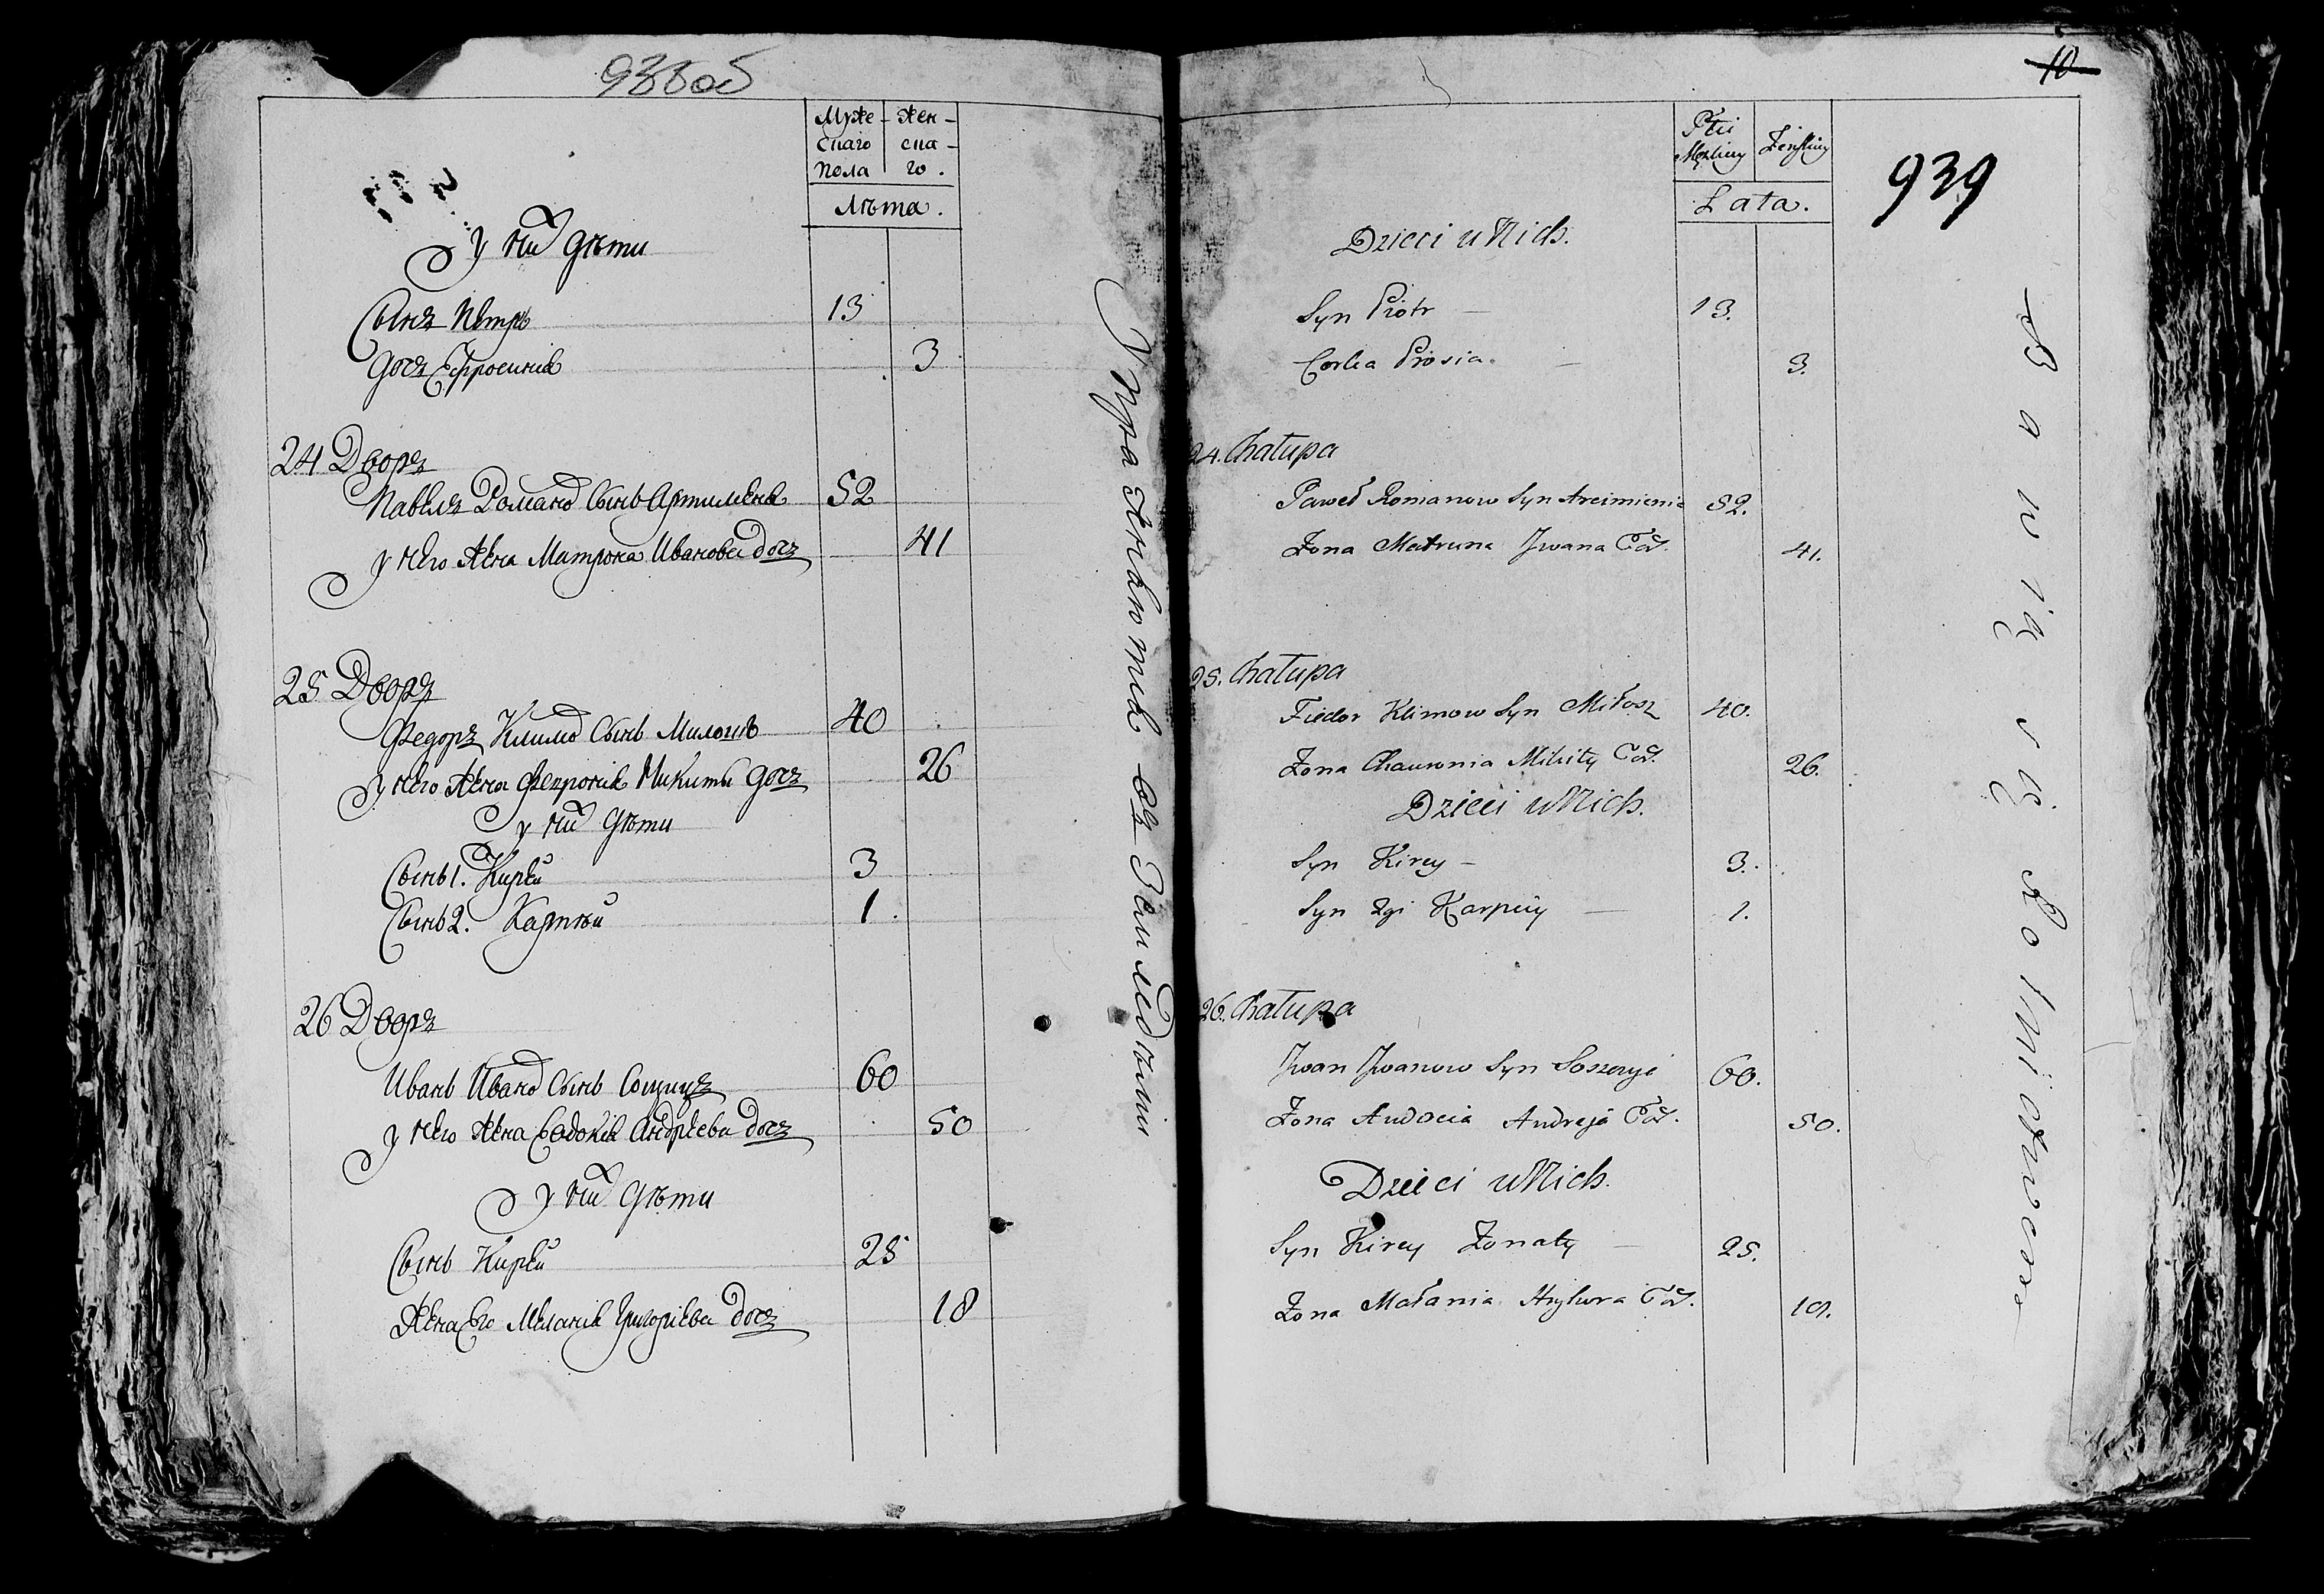 938об
Муже- Жен-
скаго ска-
пола го.
Лѣта.
у них дѣти
Сынъ Петръ 13
дочъ Ефросинiя 3
24 Дворъ
Павелъ Романов Сынъ Артименя 52
у него жена Матрона Иванова дочъ 41
25 Дворъ
Федоръ Климов Сынъ Милошъ 40
у него жена Феврониа Микиты дочъ 26
у них дѣти
Сынъ 1. Кирей 3
Сынъ 2. Карпѣй 1.
26 Дворъ
Иванъ Иванов Сынъ 60
у него жена Евдокiя Андреева дочъ 50
у них дѣти
Сынъ Кирей 25
Жена Его Меланiя Григорiева дочъ 18
10
939
Płci
Męzkiey Żeńskiey
Lata.
Dzieci u Nich.
Syn Piotr — 13.
Corka Prosia. — 3.
24. Chałupa
Paweł Romanow Syn Arcimienia 52.
Żona Matruna Jwana Cór. 41.
25. Chałupa
Fiedor Klimow Syn Miłosz 40.
Żona Chauronia Mikity Cór. 26.
Dzieci u Nich.
Syn Kirey — 3.
Syn 2gi Karpiey — 1.
26. Chałupa
Jwan Jwanow Syn 60.
Żona Audocia Andreja Cór. 50.
Dzieci u Nich.
Syn Kirey Żonaty — 25.
Żona Małania Hryhora Cór. 18.